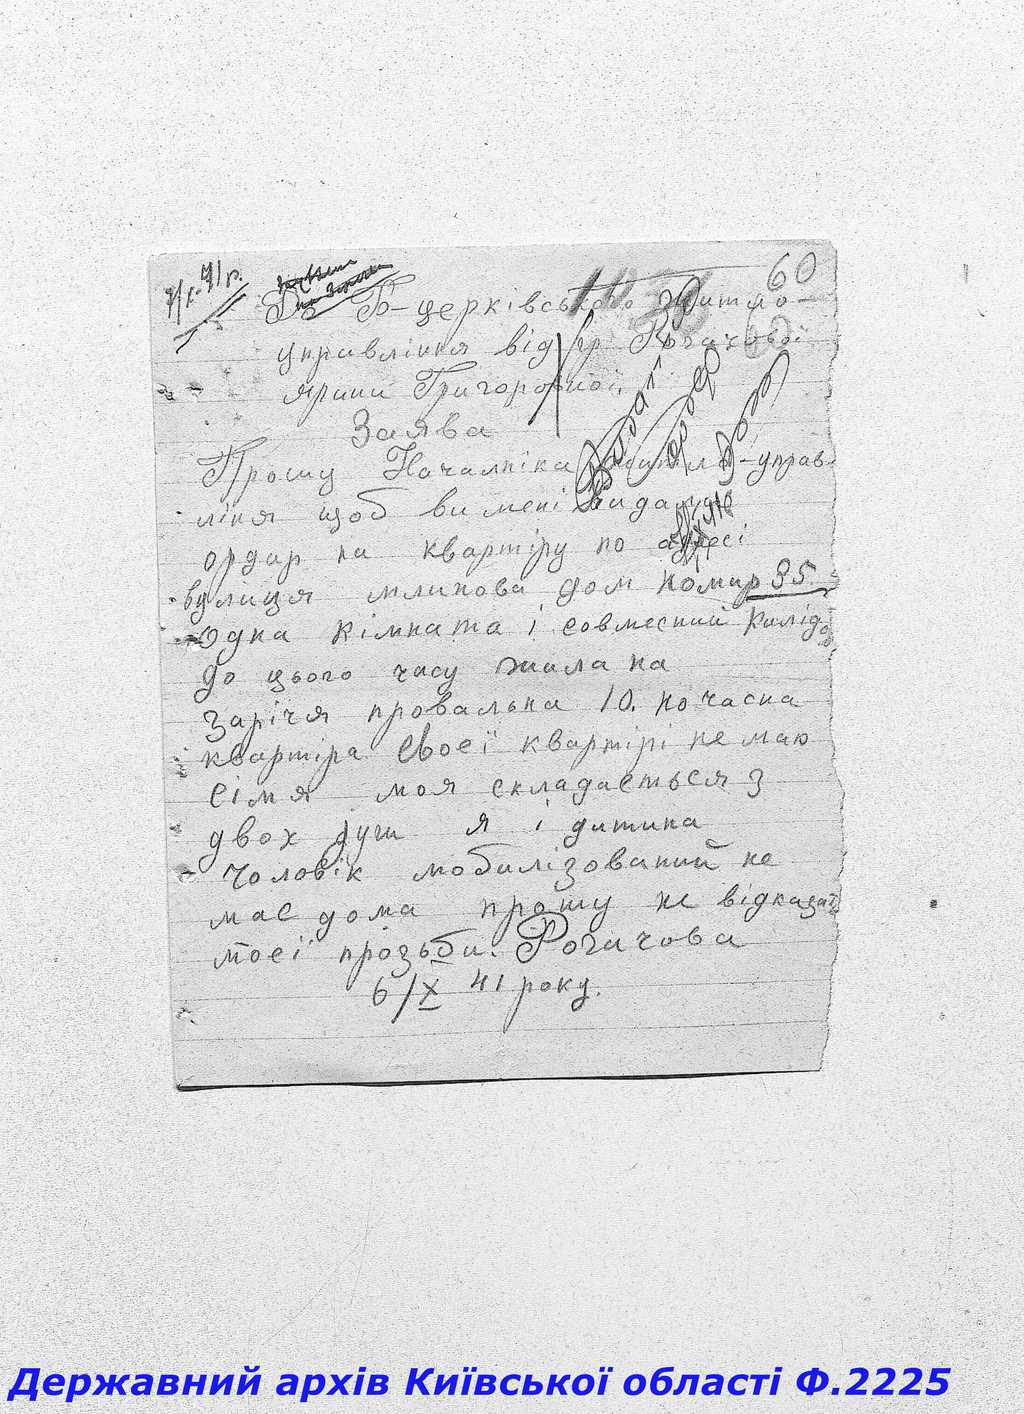 7/X-41 р.
60
До Б-церківського житло-
управління від гр Рогачової
ярини Григоровної.
Заява
Прошу Началніка житло-управ-
ліня щоб ви мені видали
ордар на квартіру по адресі
вулиця млинова дом номир 35
одна кімната і совмесний колідо
до цього часу жила на
заріччя провальна 10. но часна
квартіра своєї квартірі не маю
сімя моя складається з
двох душ я і дитина
Чоловік мобилізований не
має дома прошу не відказат
моєї прозьби. Рогачова
6/X 41 року.
Державний архів Київської області Ф.2225